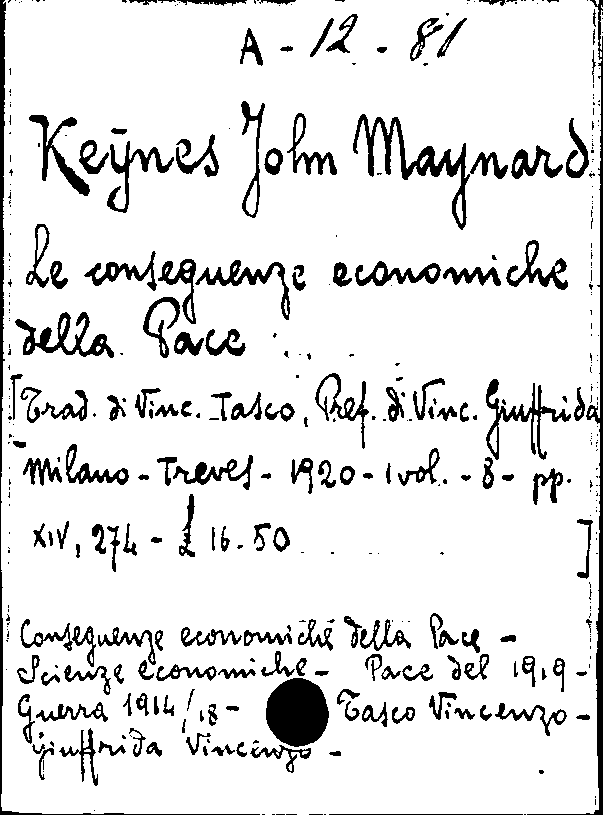 A - 12 - 81
Keynes John Maynard
Le conseguenze economiche
della Pace
[Trad. di Vinc. Tasco, Pref. di Vinc. Giuffrida
Milano - Treves - 1920 - 1 vol. - 8 - pp.
XIV, 274 - £ 16.50 ]
Conseguenze economiche della Pace -
Scienze economiche - Pace del 1919 -
Guerra 1914/18 - Tasco Vincenzo -
Giuffrida Vincenzo -